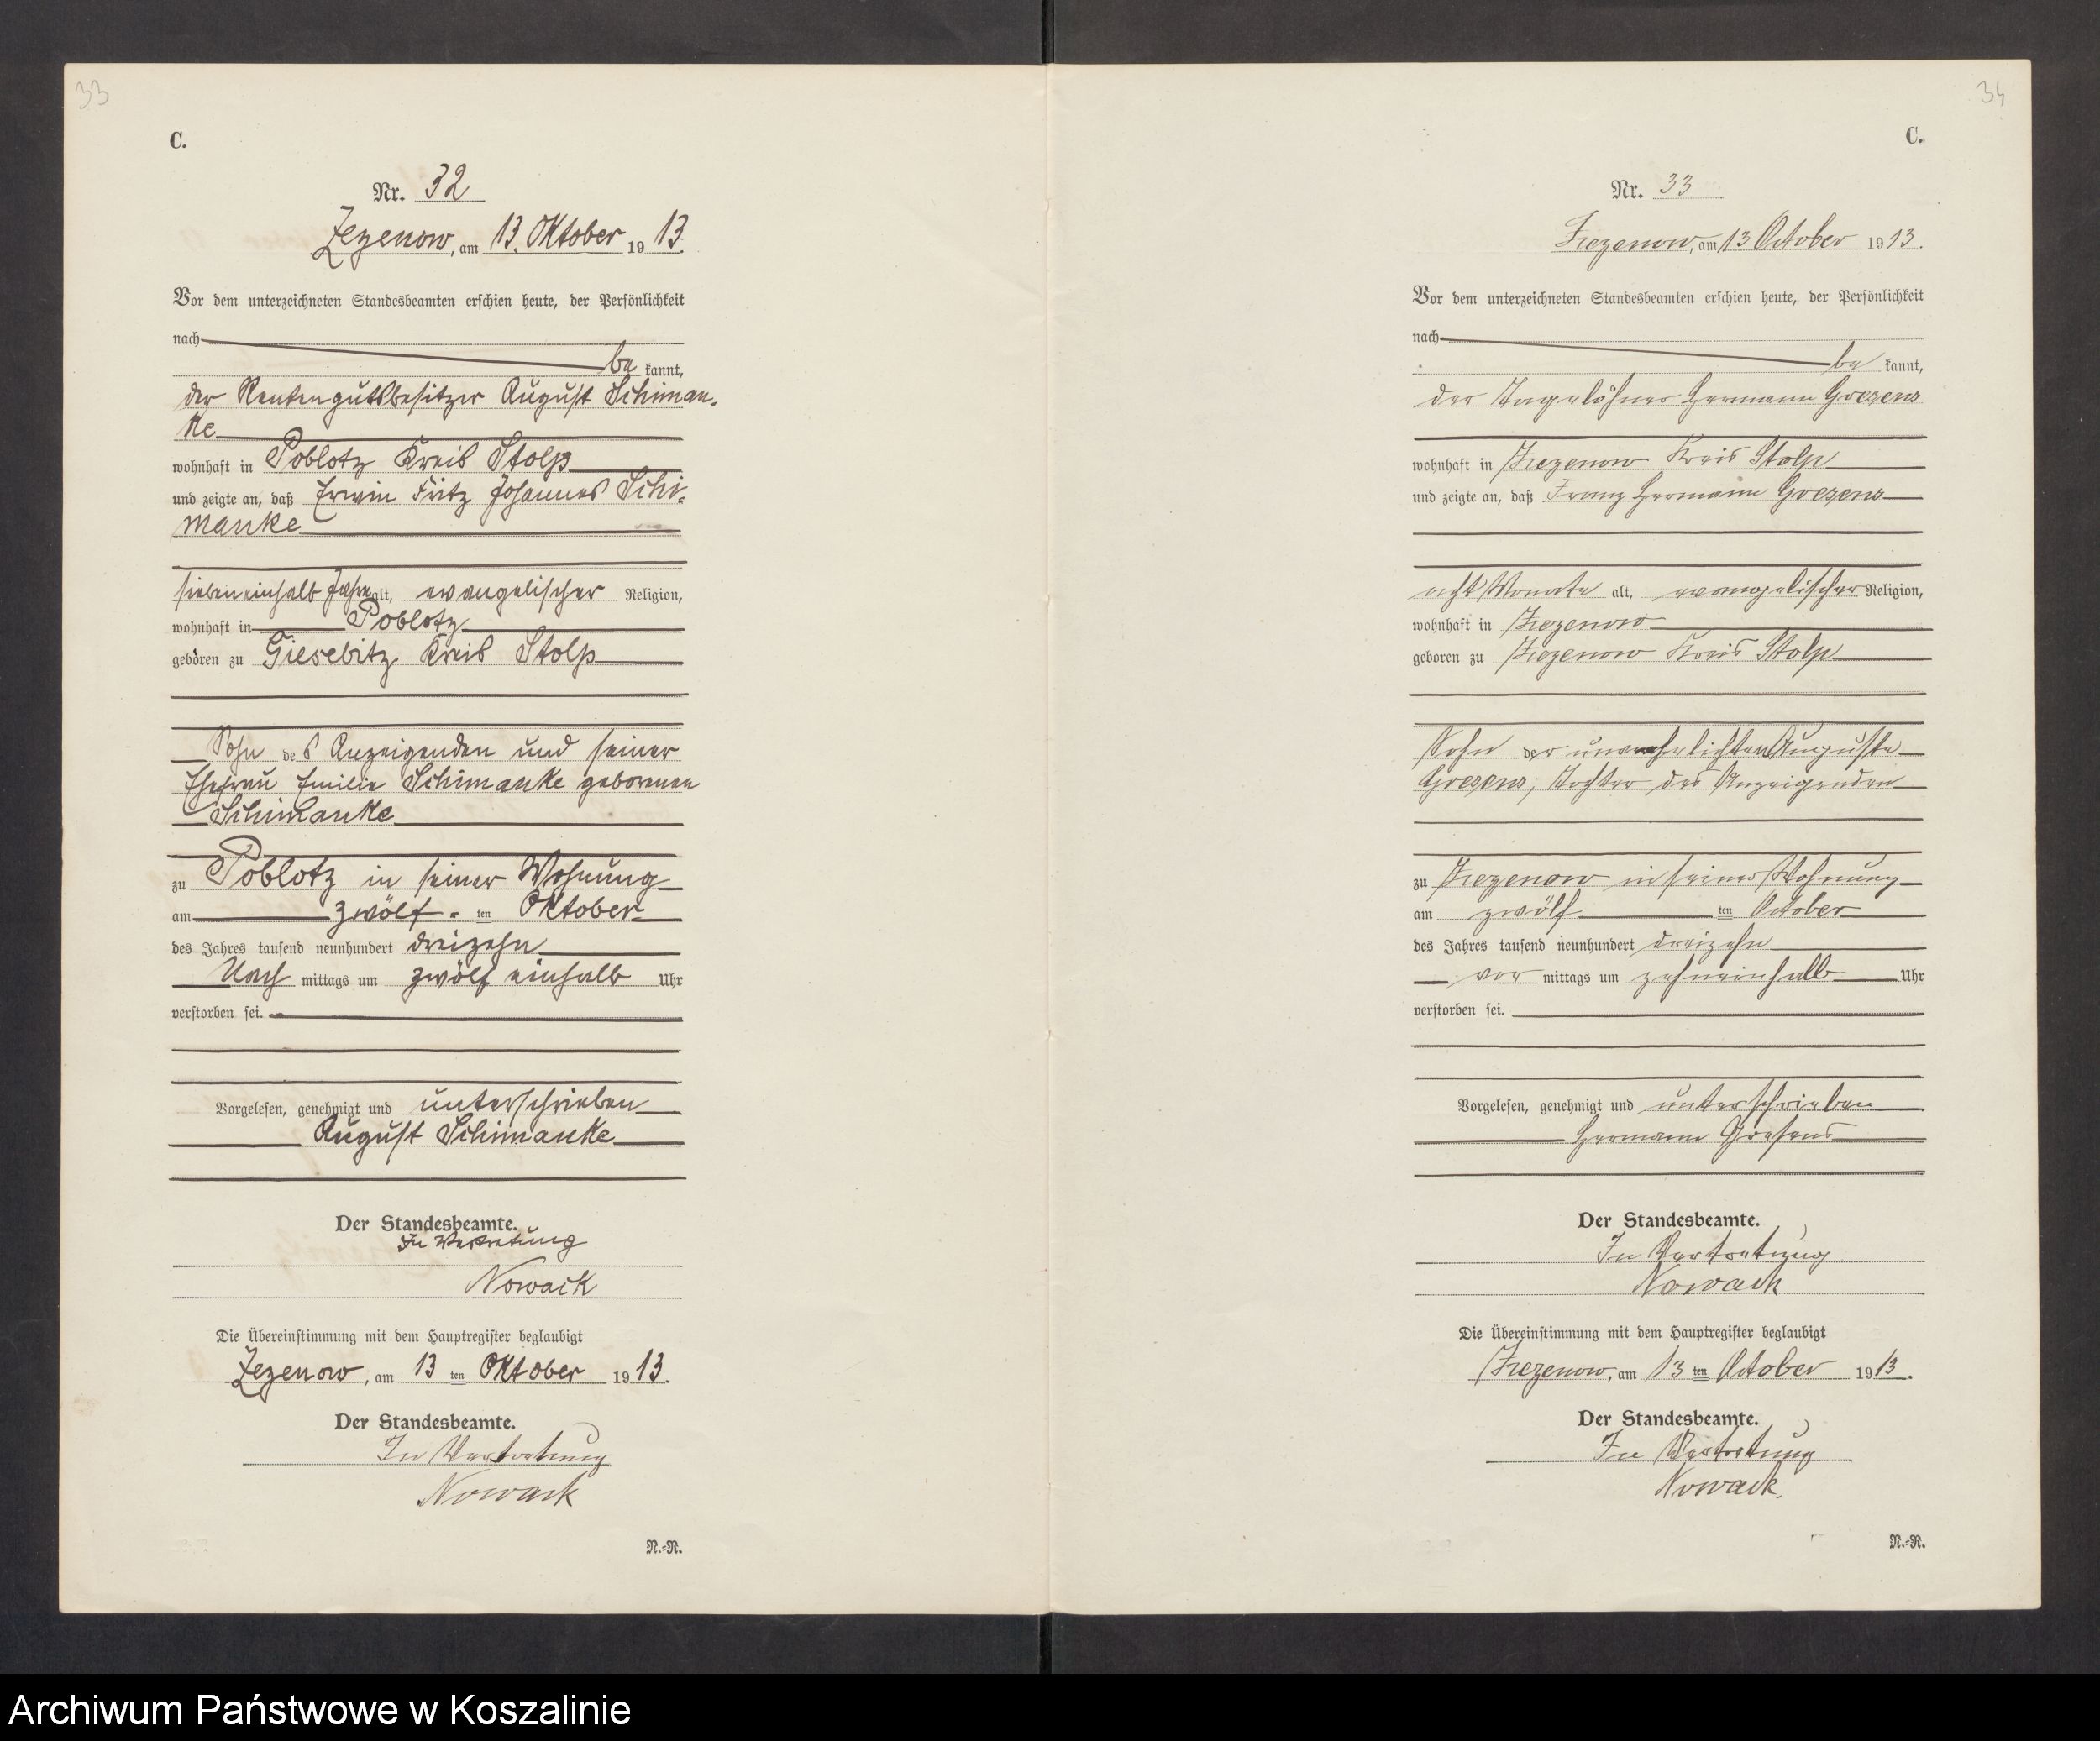 33
C.
Nr. 32
Zezenow, am 13. Oktober 1913.
Vor dem unterzeichneten Standesbeamten erschien heute, der Persönlichkeit
nach
be kannt,
der Rentengutsbesitzer August Schiman-
ke
wohnhaft in Poblotz Kreis Stolp
und zeigte an, daß Erwin Fritz Johannes Schi-
manke
siebeneinhalb Jahre alt, evangelischer Religion,
wohnhaft in Poblotz
geboren zu Giesebitz Kreis Stolp
Sohn des Anzeigenden und seiner
Ehefrau Emilie Schimanke geborenen
Schimanke
zu Poblotz in seiner Wohnung
am zwölf- ten Oktober
des Jahres tausend neunhundert dreizehn
Nach mittags um zwölf einhalb Uhr
verstorben sei.
Vorgelesen, genehmigt und unterschrieben
August Schimanke
Der Standesbeamte.
In Vertretung
Nowack
Die Übereinstimmung mit dem Hauptregister beglaubigt
Zezenow, am 13 ten Oktober 1913.
Der Standesbeamte.
In Vertretung
Nowack
N.-R.
34
C.
Nr. 33
Zezenow, am 13 October 1913.
Vor dem unterzeichneten Standesbeamten erschien heute, der Persönlichkeit
nach
be kannt,
der Tagelöhner Hermann Goesens
wohnhaft in Zezenow Kreis Stolp
und zeigte an, daß Franz Hermann Goesens
acht Monate alt, evangelischer Religion,
wohnhaft in Zezenow
geboren zu Zezenow Kreis Stolp
Sohn der unverehelichten Auguste
Goesens, Tochter des Anzeigenden
zu Zezenow in seiner Wohnung
am zwölf ten October
des Jahres tausend neunhundert dreizehn
vor mittags um zehneinhalb Uhr
verstorben sei.
Vorgelesen, genehmigt und unterschrieben
Hermann Goesens
Der Standesbeamte.
In Vertretung
Nowack
Die Übereinstimmung mit dem Hauptregister beglaubigt
Zezenow, am 13 ten October 1913.
Der Standesbeamte.
In Vertretung
Nowack.
N.-R.
Archiwum Państwowe w Koszalinie